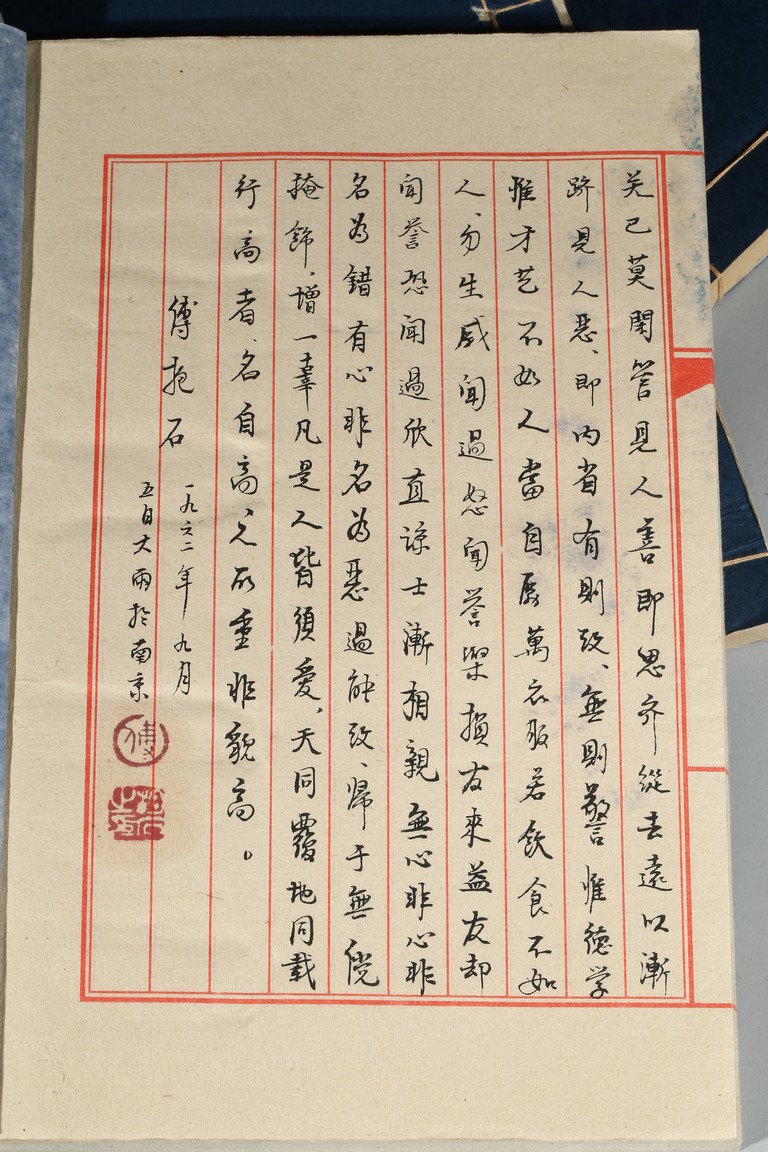 关己莫闲管见人善即思齐從去遠以漸
跡見人惡、即内省有则改、無则警惟德学
惟才艺不如人當自厲萬衣服若飲食不如
人、勿生慼闻過怒闻誉樂損友來益友却
闻誉恐闻過欣直諒士漸相親無心非心非
名為錯有心非名為惡過能改、歸于無倘
掩飾、增一辜凡是人皆須愛、天同覆地同载
行高者、名自高、人所重非貌高。
傅抱石
一九六二年九月
五日大雨於南京
傅